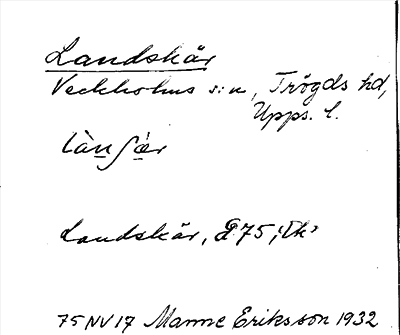 Landskär
Veckholms s:n, Trögds hd,
Upps. l.
lànʃær
Landskär,
75 NV 17 Manne Eriksson 1932